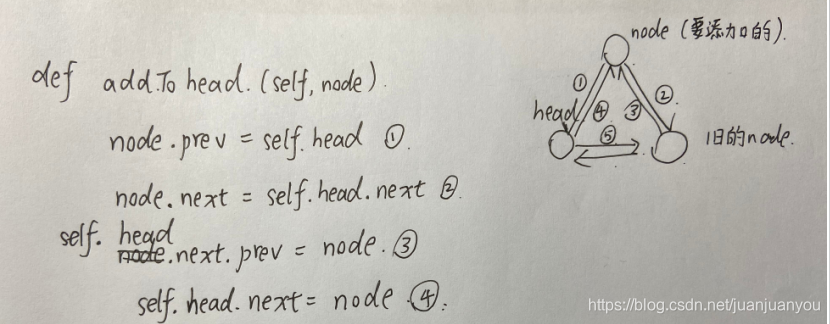 def addTo head. (self, node).
node.prev = self.head ①.
node.next = self.head.next ②.
self. head
node.next.prev = node. ③
self.head.next = node ④.
node (要添加的).
①
②
head
④
③
⑤
旧的node.
https://blog.csdn.net/juanjuanyou